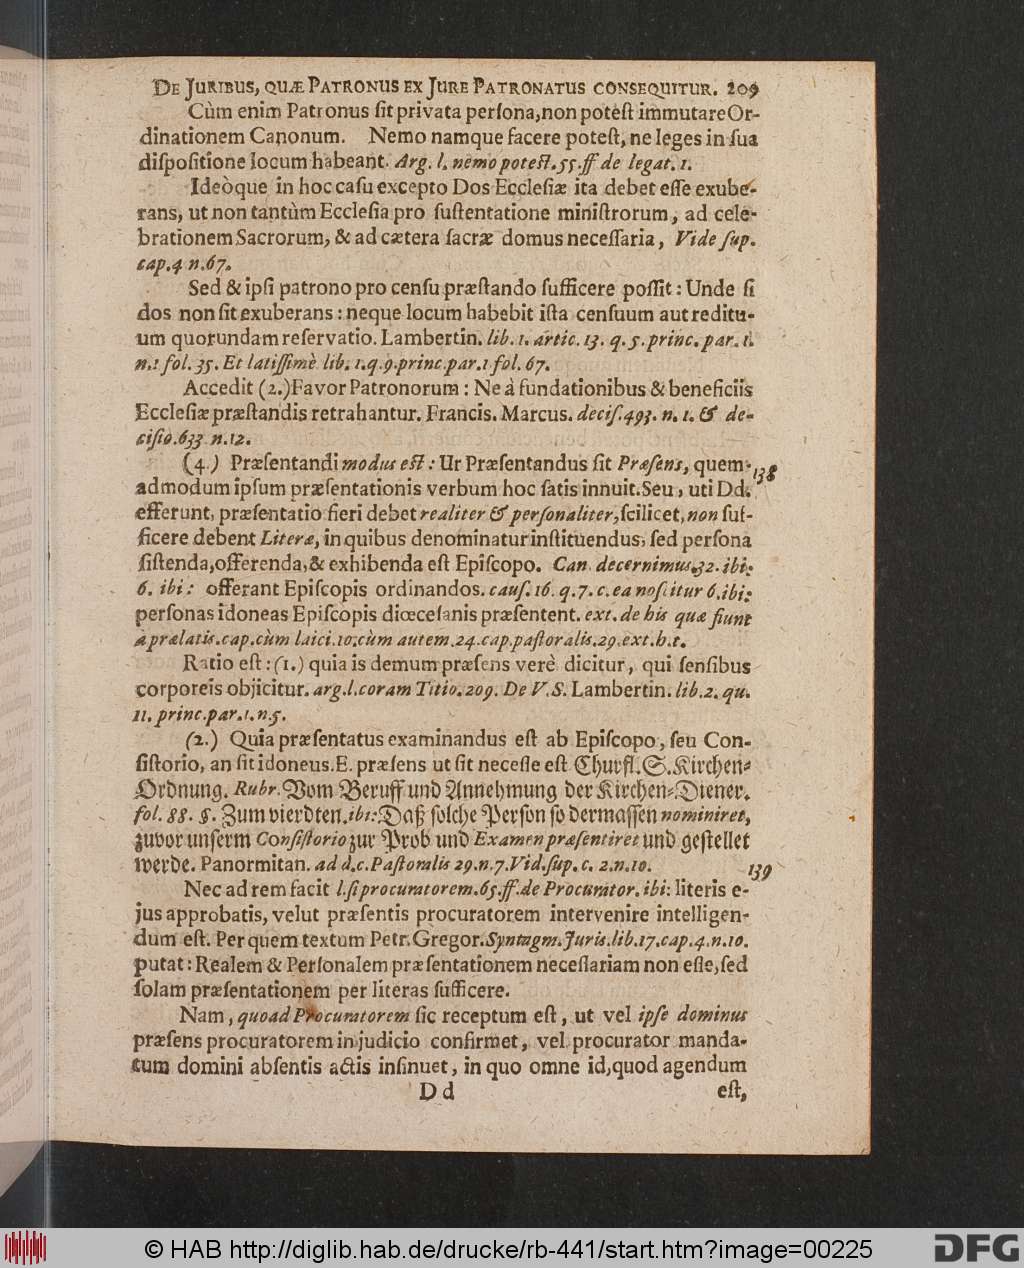 De Juribus, quæ Patronus ex Jure Patronatus consequitur. 209
Cùm enim Patronus ſit privata perſona, non poteſt immutare Or-
dinationem Canonum. Nemo namque facere poteſt, ne leges in ſua
diſpoſitione locum habeant. Arg. l. nemo poteſt. 55. ff de legat. 1.
Ideòque in hoc caſu excepto Dos Eccleſiæ ita debet eſſe exube-
rans, ut non tantùm Eccleſia pro ſuſtentatione miniſtrorum, ad cele-
brationem Sacrorum, & ad cætera ſacræ domus neceſſaria, Vide ſup.
cap. 4 n. 67.
Sed & ipſi patrono pro cenſu præſtando ſufficere poſſit: Unde ſi
dos non ſit exuberans: neque locum habebit iſta cenſuum aut reditu-
um quorundam reſervatio. Lambertin. lib. 1. artic. 13. q. 5. princ. par. 1.
n. 1 fol. 35. Et latiſſimè lib. 1. q. 9. princ. par. 1 fol. 67.
Accedit (2.) Favor Patronorum: Ne à fundationibus & beneficiis
Eccleſiæ præſtandis retrahantur. Francis. Marcus. deciſ. 493. n. 1. & de-
ciſio. 633 n. 12.
(4.) Præſentandi modus eſt: Ut Præſentandus ſit Præſens, quem- 138
admodum ipſum præſentationis verbum hoc ſatis innuit. Seu, uti Dd.
efferunt, præſentatio fieri debet realiter & perſonaliter, ſcilicet, non ſuf-
ficere debent Literæ, in quibus denominatur inſtituendus, ſed perſona
ſiſtenda, offerenda, & exhibenda eſt Epiſcopo. Can. decernimus. 32. ibi:
6. ibi: offerant Epiſcopis ordinandos. cauſ. 16. q. 7. c. ea noſcitur 6. ibi:
perſonas idoneas Epiſcopis diœceſanis præſentent. ext. de his quæ fiunt
à prælatis. cap. cùm laici. 10. cùm autem. 24. cap. paſtoralis. 29. ext. h. t.
Ratio eſt: (1.) quia is demum præſens verè dicitur, qui ſenſibus
corporeis objicitur. arg. l. coram Titio. 209. De V. S. Lambertin. lib. 2. qu.
11. princ. par. 1. n. 5.
(2.) Quia præſentatus examinandus eſt ab Epiſcopo, ſeu Con-
ſiſtorio, an ſit idoneus. E. præſens ut ſit neceſſe eſt Churfl. S. Kirchen-
Ordnung. Rubr. Vom Beruff und Annehmung der Kirchen-Diener.
fol. 88. §. Zum vierdten. ibi: Daß ſolche Perſon ſo dermaſſen nominiret,
zuvor unſerm Conſiſtorio zur Prob und Examen præſentiret und geſtellet
werde. Panormitan. ad d. c. Paſtoralis 29. n. 7. Vid. ſup. c. 2. n. 10. 139
Nec ad rem facit l. ſi procuratorem. 65. ff. de Procurator. ibi: literis e-
jus approbatis, velut præſentis procuratorem intervenire intelligen-
dum eſt. Per quem textum Petr. Gregor. Syntagm. Juris. lib. 17. cap. 4. n. 10.
putat: Realem & Perſonalem præſentationem neceſſariam non eſſe, ſed
ſolam præſentationem per literas ſufficere.
Nam, quoad Procuratorem ſic receptum eſt, ut vel ipſe dominus
præſens procuratorem in judicio confirmet, vel procurator manda-
tum domini abſentis actis inſinuet, in quo omne id, quod agendum
D d eſt,
© HAB http://diglib.hab.de/drucke/rb-441/start.htm?image=00225
DFG